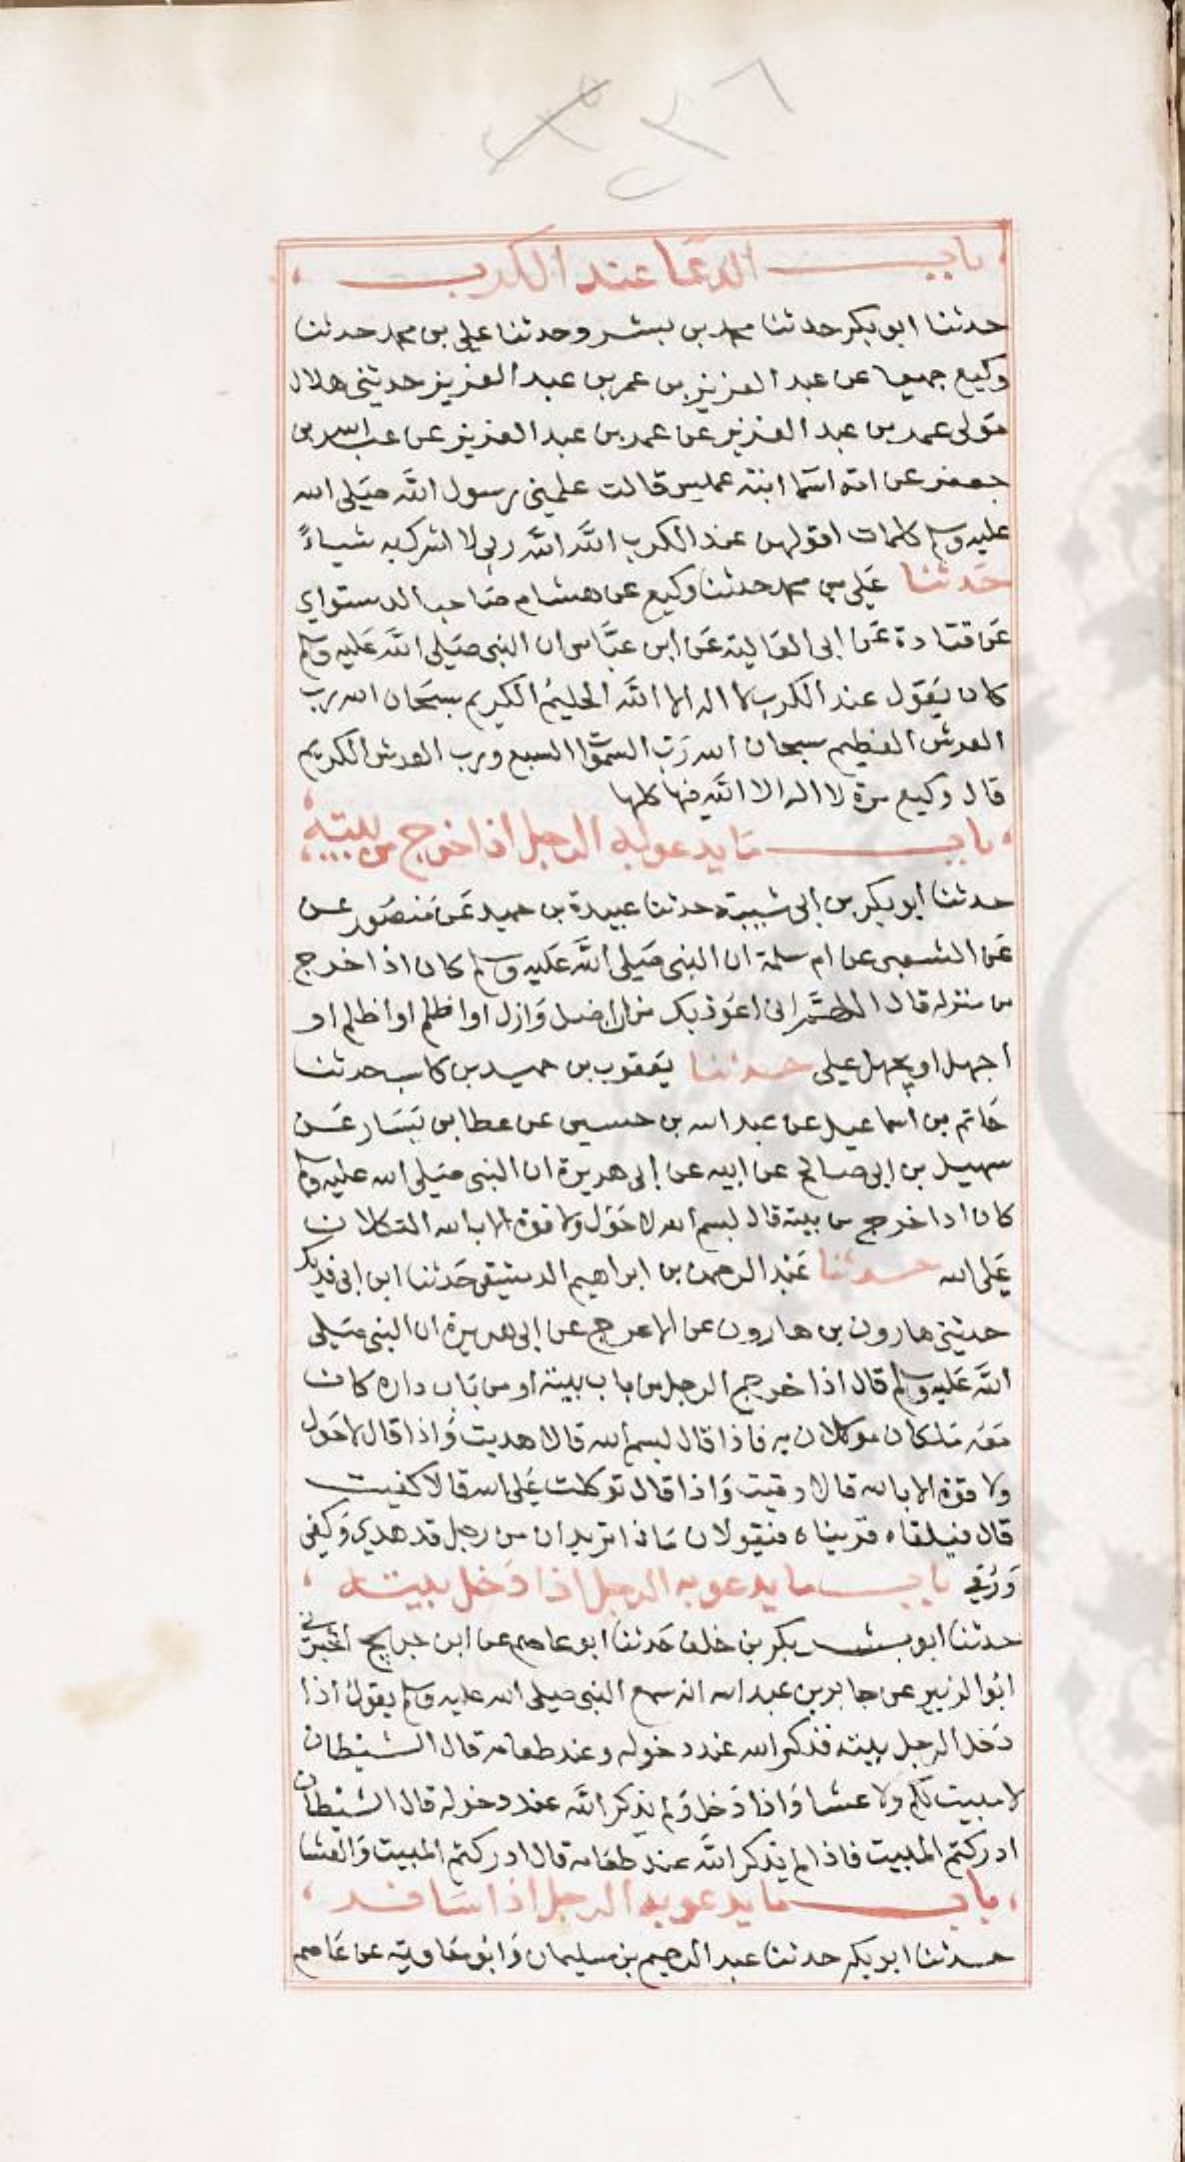 ٢٢٦
باب الدعا عند الكرب
حدثنا ابو بكر حدثنا محمد بن بشر وحدثنا علي بن محمد حدثنا
وكيع جميعا عن عبد العزيز بن عمر بن عبد العزيز حديثني هلال
مولى عمر بن عبد العزيز عن عمر بن عبد العزيز عن عبد الله بن
جعفر عن امه اسما ابنة عميس قالت علمني رسول الله صلى الله
عليه وسلم كلمات اقولهن عند الكرب الله الله ربي لا اشرك به شياءً
حدثنا علي بن محمد حدثنا وكيع عن هشام صاحب الدستواي
عن قتادة عن ابى العالية عن ابن عباس ان النبي صلى الله عليه وسلم
كان يقول عند الكرب لا اله الا الله الحليم الكريم سبحان الله رب
العرش العظيم سبحان الله رب السموات السبع ورب العرش الكريم
قال وكيع مرة لا اله الا الله فيها كلها
باب ما يدعو به الرجل اذا خرج من بيته
حدثنا ابو بكر بن ابى شيبة حدثنا عبيدة بن حميد عن منصور عن
عن الشعبى عن ام سلمة ان النبي صلى الله عليه وسلم كان اذا خرج
من منزله قال اللهم انى اعوذ بك من ان اضل وازل او اظلم او اظلم او
اجهل او يجهل علي حدثنا يعقوب بن حميد بن كاسب حدثنا
حاتم بن اسماعيل عن عبد الله بن حسين عن عطا بن يسار عن
سهيل بن ابى صالح عن ابيه عن ابى هريرة ان النبي صلى الله عليه وسلم
كان اذا خرج من بيته قال بسم الله لا حول ولا قوة الا بالله التكلان
على الله حدثنا عبد الرحمن بن ابراهيم الدمشقي حدثنا ابن ابى فديك
حديثني هارون بن هارون عن الاعرج عن ابى هريرة ان النبي صلى
الله عليه وسلم قال اذا خرج الرجل من باب بيته او من باب داره كان
معه ملكان موكلان به فاذا قال بسم الله قالا هديت واذا قال لا حول
ولا قوة الا بالله قالا وقيت واذا قال توكلت على الله قالا كفيت
قال فيلقاه قريناه فيقولان ماذا تريدان من رجل قد هدي وكفى
ووقي باب ما يدعو به الرجل اذا دخل بيته
حدثنا ابو بشر بكر بن خلف حدثنا ابو عاصم عن ابن جريج اخبرني
ابو الزبير عن جابر بن عبد الله انه سمع النبي صلى الله عليه وسلم يقول اذا
دخل الرجل بيته فذكر الله عند دخوله وعند طعامه قال الشيطان
لا مبيت لكم ولا عشا واذا دخل ولم يذكر الله عند دخوله قال الشيطان
ادركتم المبيت فاذا لم يذكر الله عند طعامه قال ادركتم المبيت والعشا
باب ما يدعو به الرجل اذا سافر
حدثنا ابو بكر حدثنا عبد الرحيم بن سليمان وابو معاوية عن عاصم